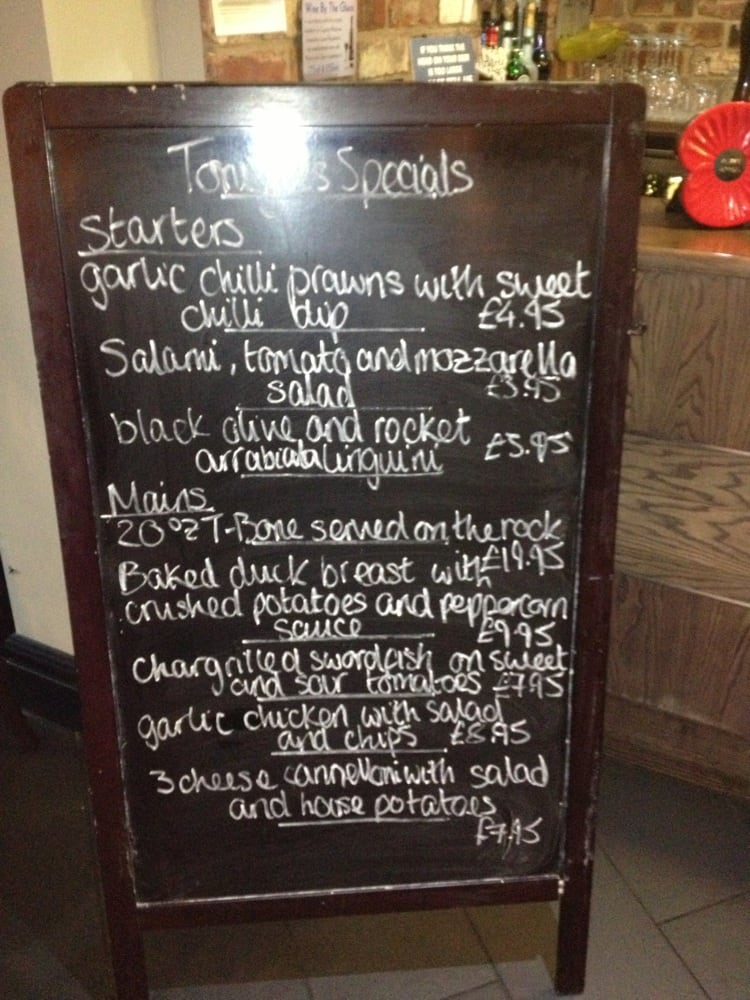 Wine By The Glass
IF YOU THINK THE
HEAD ON YOUR BEER
IS TOO LARGE
Specials
Starters
garlic chilli prawns with sweet
chilli dip £4.95
Salami, tomato and mozzarella
salad £3.95
black olive and rocket
arrabiata linguini £3.95
Mains
20oz T-Bone served on the rock
£19.95
Baked duck breast with
crushed potatoes and peppercorn
sauce £9.95
chargrilled swordfish on sweet
and sour tomatoes £7.95
garlic chicken with salad
and chips £8.95
3 cheese cannelloni with salad
and house potatoes
£7.95